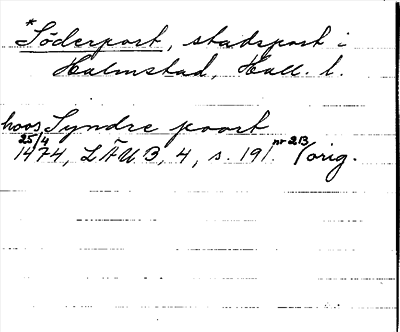 *Söderport, stadsport i
Halmstad, Hall. l.
hoos Syndre poort
25/4 1474, LÄUB, 4, s. 191. nr 213 (orig.